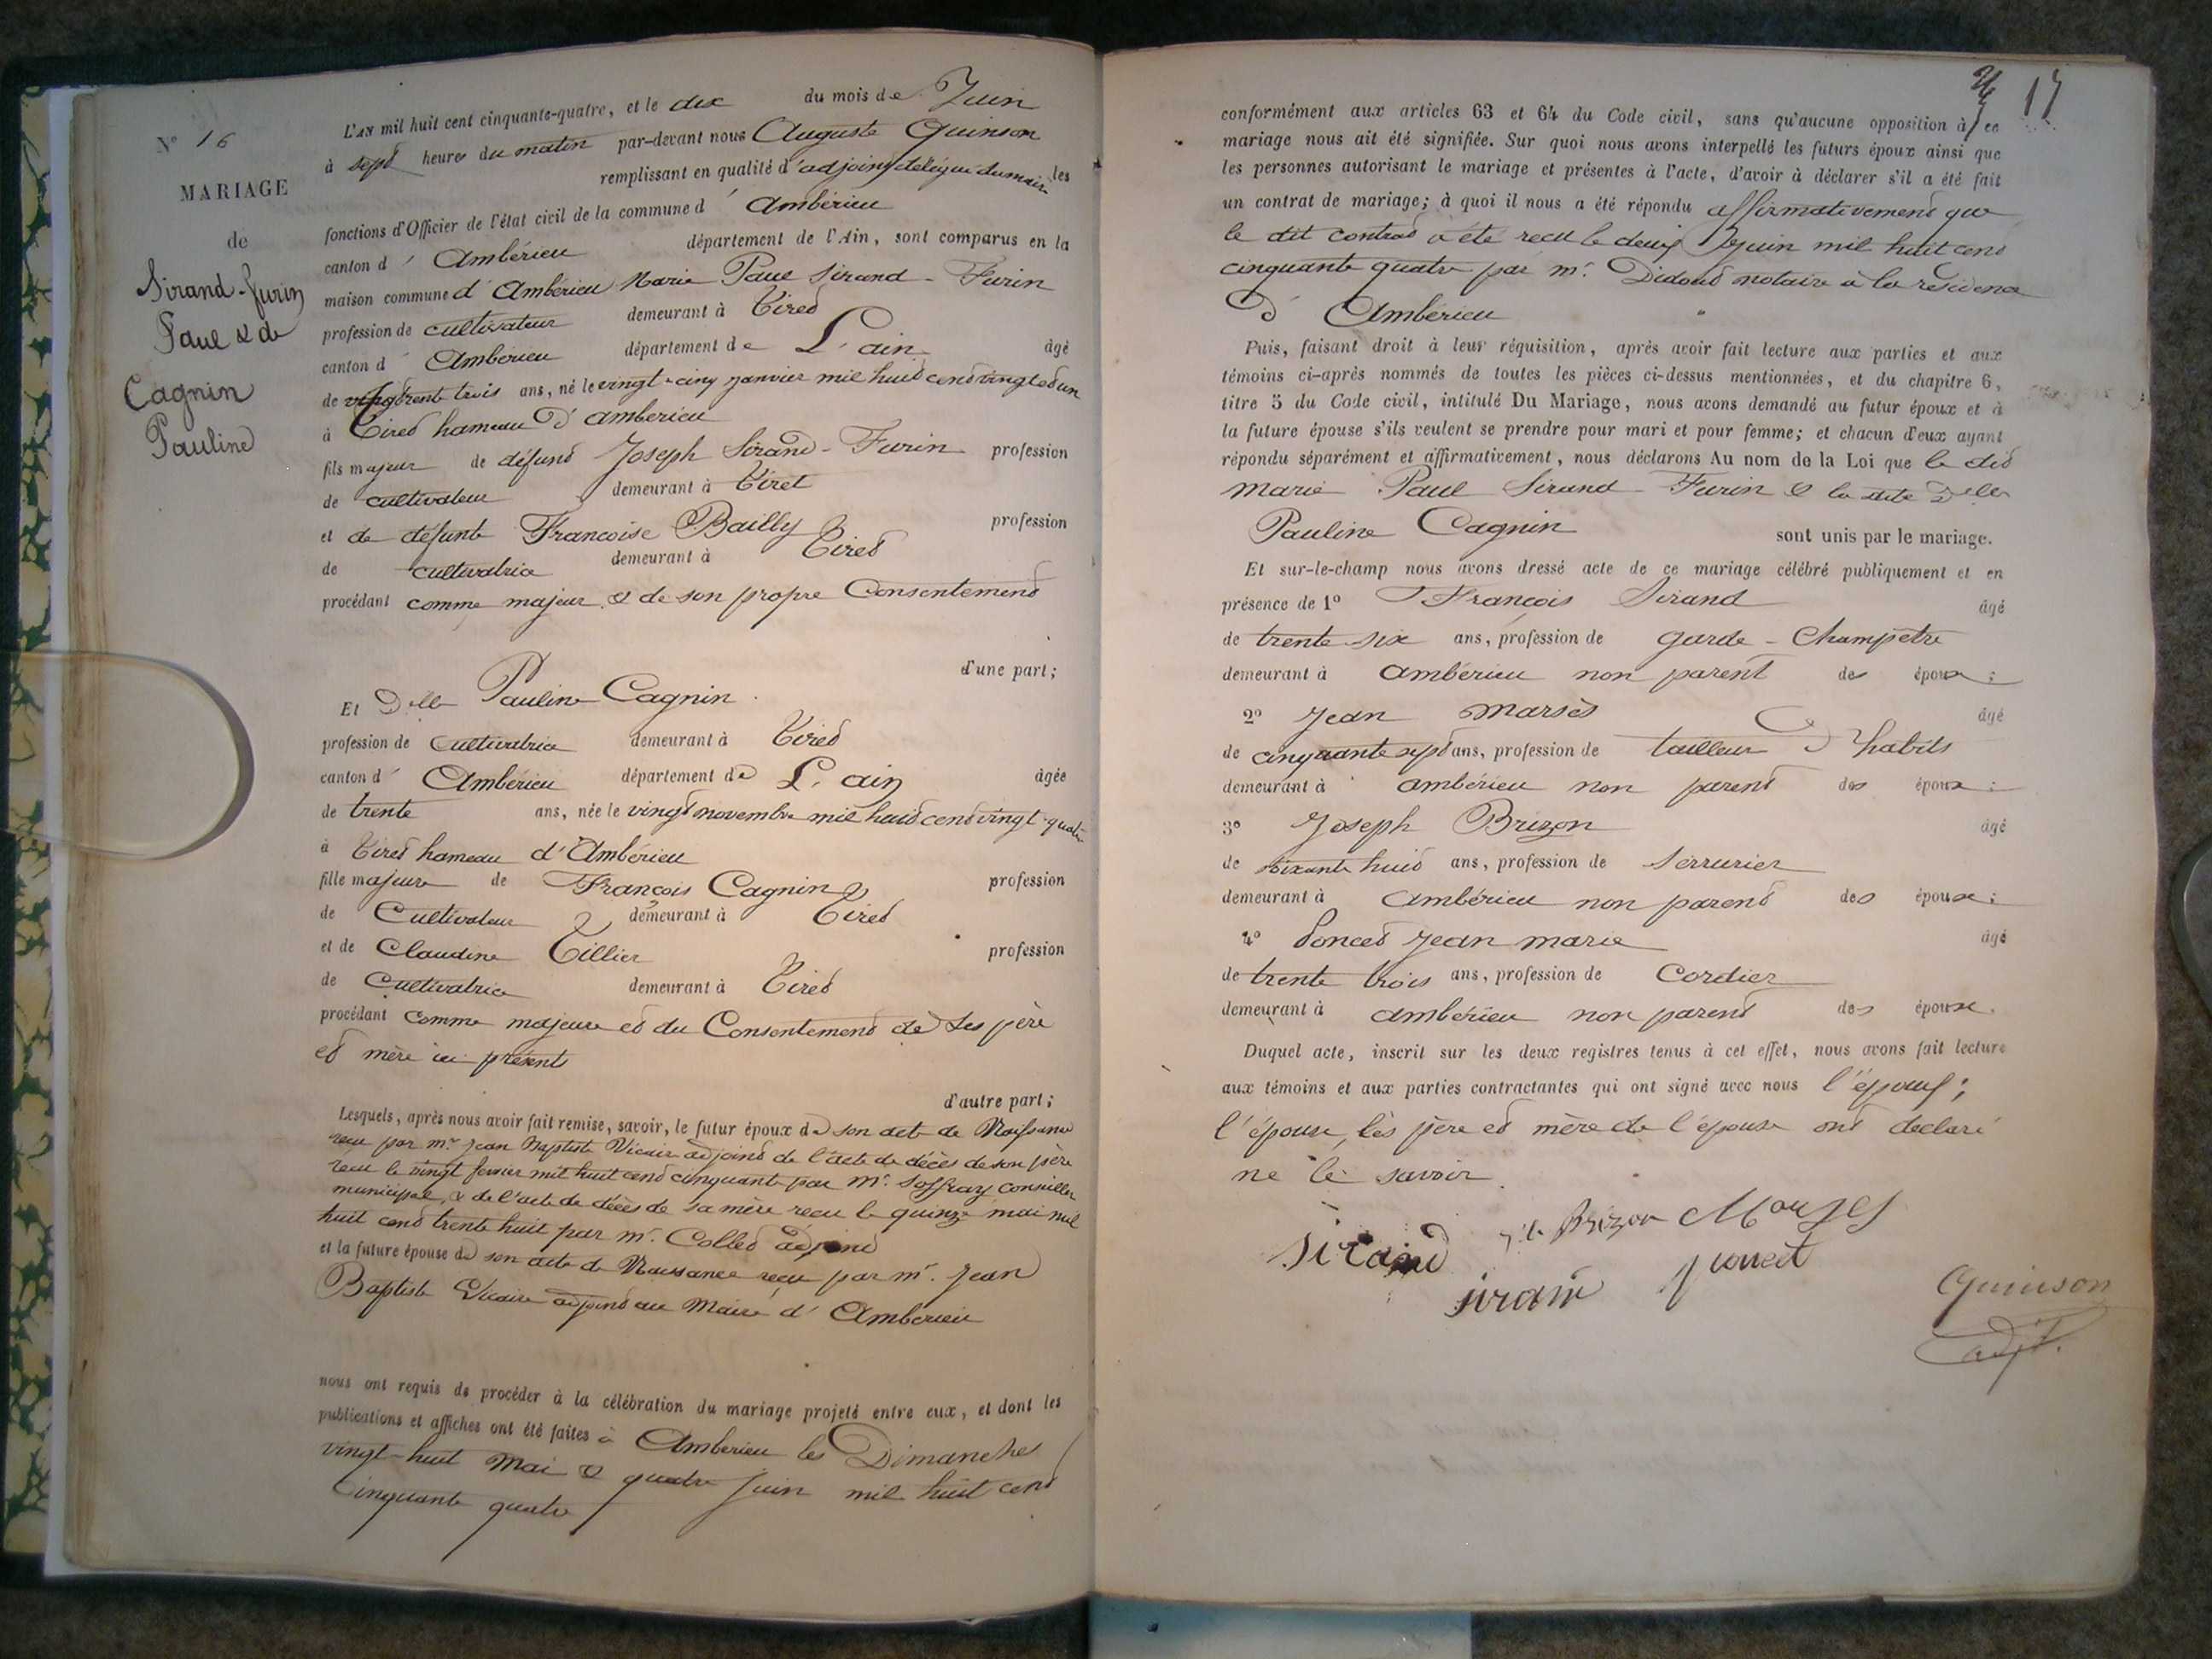 N° 16
MARIAGE
de
Sirand-Furin
Paul & de
Cagnin
Pauline
L'AN mil huit cent cinquante-quatre, et le dix du mois de Juin
à sept heures du matin par-devant nous Auguste Quinson
remplissant en qualité d'adjoint délégué du maire les
fonctions d'Officier de l'état civil de la commune d' Ambérieu
canton d' Ambérieu département de l'Ain, sont comparus en la
maison commune d' Ambérieu Marie Paul Sirand-Furin
profession de cultivateur demeurant à Tiret
canton d' Ambérieu département de L'ain âgé
de trente trois ans, né le vingt-cinq janvier mil huit cent vingt et un
à Tiret hameau d'ambérieu
fils majeur de défunt Joseph Sirand-Furin profession
de cultivateur demeurant à Tiret
et de défunte Francoise Bailly profession
de cultivatrice demeurant à Tiret
procédant comme majeur & de son propre Consentement
d'une part;
Et Delle Pauline Cagnin
profession de Cultivatrice demeurant à Tiret
canton d' Ambérieu département de L'ain âgée
de trente ans, née le vingt novembre mil huit cent vingt-quatre
à Tiret hameau d'Ambérieu
fille majeure de François Cagnin profession
de Cultivateur demeurant à Tiret
et de Claudine Tillier profession
de Cultivatrice demeurant à Tiret
procédant comme majeure et du Consentement de ses père
et mère ici présents
d'autre part;
Lesquels, après nous avoir fait remise, savoir, le futur époux de son acte de Naissance
recu par mr Jean Baptiste Vicaire adjoint de l'acte de décès de son père
recu le vingt fevrier mil huit cent cinquante par mr. Soffray conseiller
municipal, & de l'acte de décès de sa mère recu le quinze mai mil
huit cent trente huit par mr. Collet adjoint
et la future épouse de son acte de Naissance recu par mr. Jean
Baptiste Vicaire adjoint au Maire d' Ambérieu
nous ont requis de procéder à la célébration du mariage projeté entre eux, et dont les
publications et affiches ont été faites à Ambérieu les Dimanches
vingt-huit Mai & quatre Juin mil huit cent
Cinquante quatre
17
conformément aux articles 63 et 64 du Code civil, sans qu'aucune opposition à ce
mariage nous ait été signifiée. Sur quoi nous avons interpellé les futurs époux ainsi que
les personnes autorisant le mariage et présentes à l'acte, d'avoir à déclarer s'il a été fait
un contrat de mariage; à quoi il nous a été répondu affirmativement que
le dit contrat a été recu le deux Juin mil huit cent
cinquante quatre par mr. Didout notaire à la résidence
d' Ambérieu
Puis, faisant droit à leur réquisition, après avoir fait lecture aux parties et aux
témoins ci-après nommés de toutes les pièces ci-dessus mentionnées, et du chapitre 6,
titre 5 du Code civil, intitulé Du Mariage, nous avons demandé au futur époux et à
la future épouse s'ils veulent se prendre pour mari et pour femme; et chacun d'eux ayant
répondu séparément et affirmativement, nous déclarons Au nom de la Loi que le dit
Marie Paul Sirand-Furin & la dite Delle
Pauline Cagnin sont unis par le mariage.
Et sur-le-champ nous avons dressé acte de ce mariage célébré publiquement et en
présence de 1° François Sirand âgé
de trente six ans, profession de garde-Champetre
demeurant à ambérieu non parent des époux;
2° Jean Marsès âgé
de cinquante sept ans, profession de tailleur d'habits
demeurant à ambérieu non parent des époux;
3° Joseph Brizon âgé
de soixante huit ans, profession de serrurier
demeurant à ambérieu non parent des époux;
4° Poncet Jean marie âgé
de trente trois ans, profession de Cordier
demeurant à ambérieu non parent des époux.
Duquel acte, inscrit sur les deux registres tenus à cet effet, nous avons fait lecture
aux témoins et aux parties contractantes qui ont signé avec nous l'époux;
l'épouse, les père et mère de l'épouse ont declaré
ne le savoir
Brizon
sirand
sirand
poncet
Quinson
adjt.